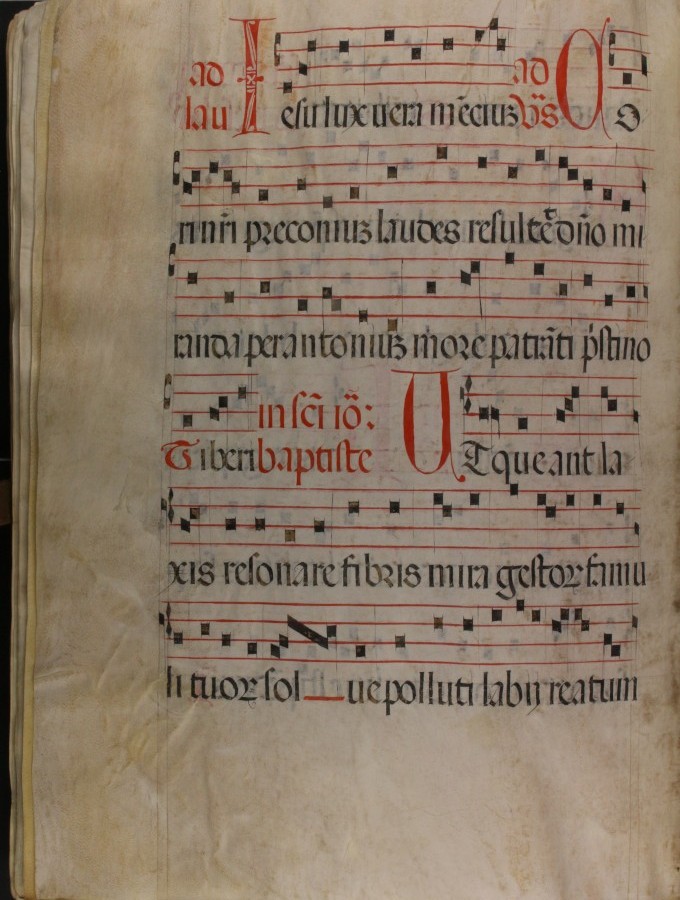 ad ad
lau Iesu lux uera mēciuz v̄s Co
ri nr̄i preconiuz laudes resultēt dño mi
randa per antoniuz more patrāti p̄stino
in sc̄i iō:
Tiberi baptiste UT queant la
xis resonare fibris mira gestoꝝ famu
li tuoꝝ sol ue polluti labij reatum